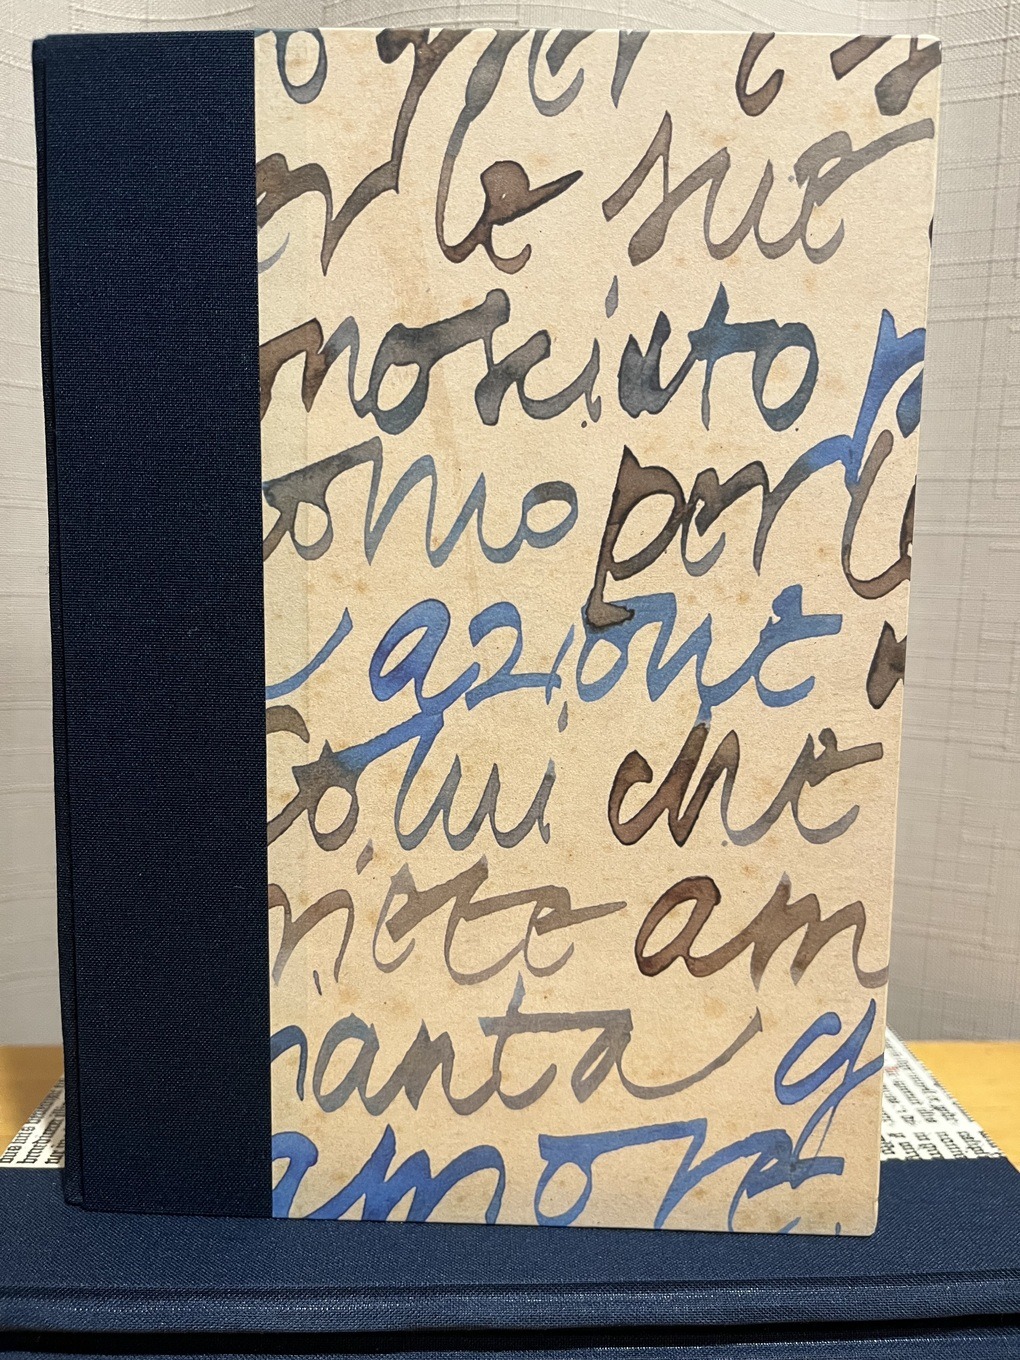 o per es
er le sue
nosciuto
omo per li
azione
colui che
riete am
nanta g
amore